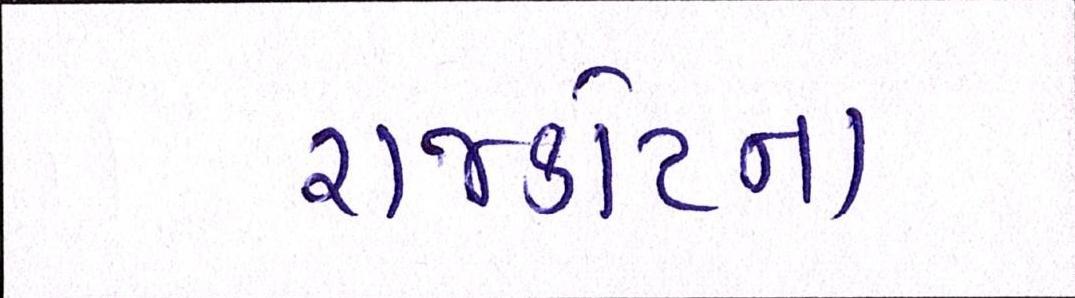 રાજકોટના